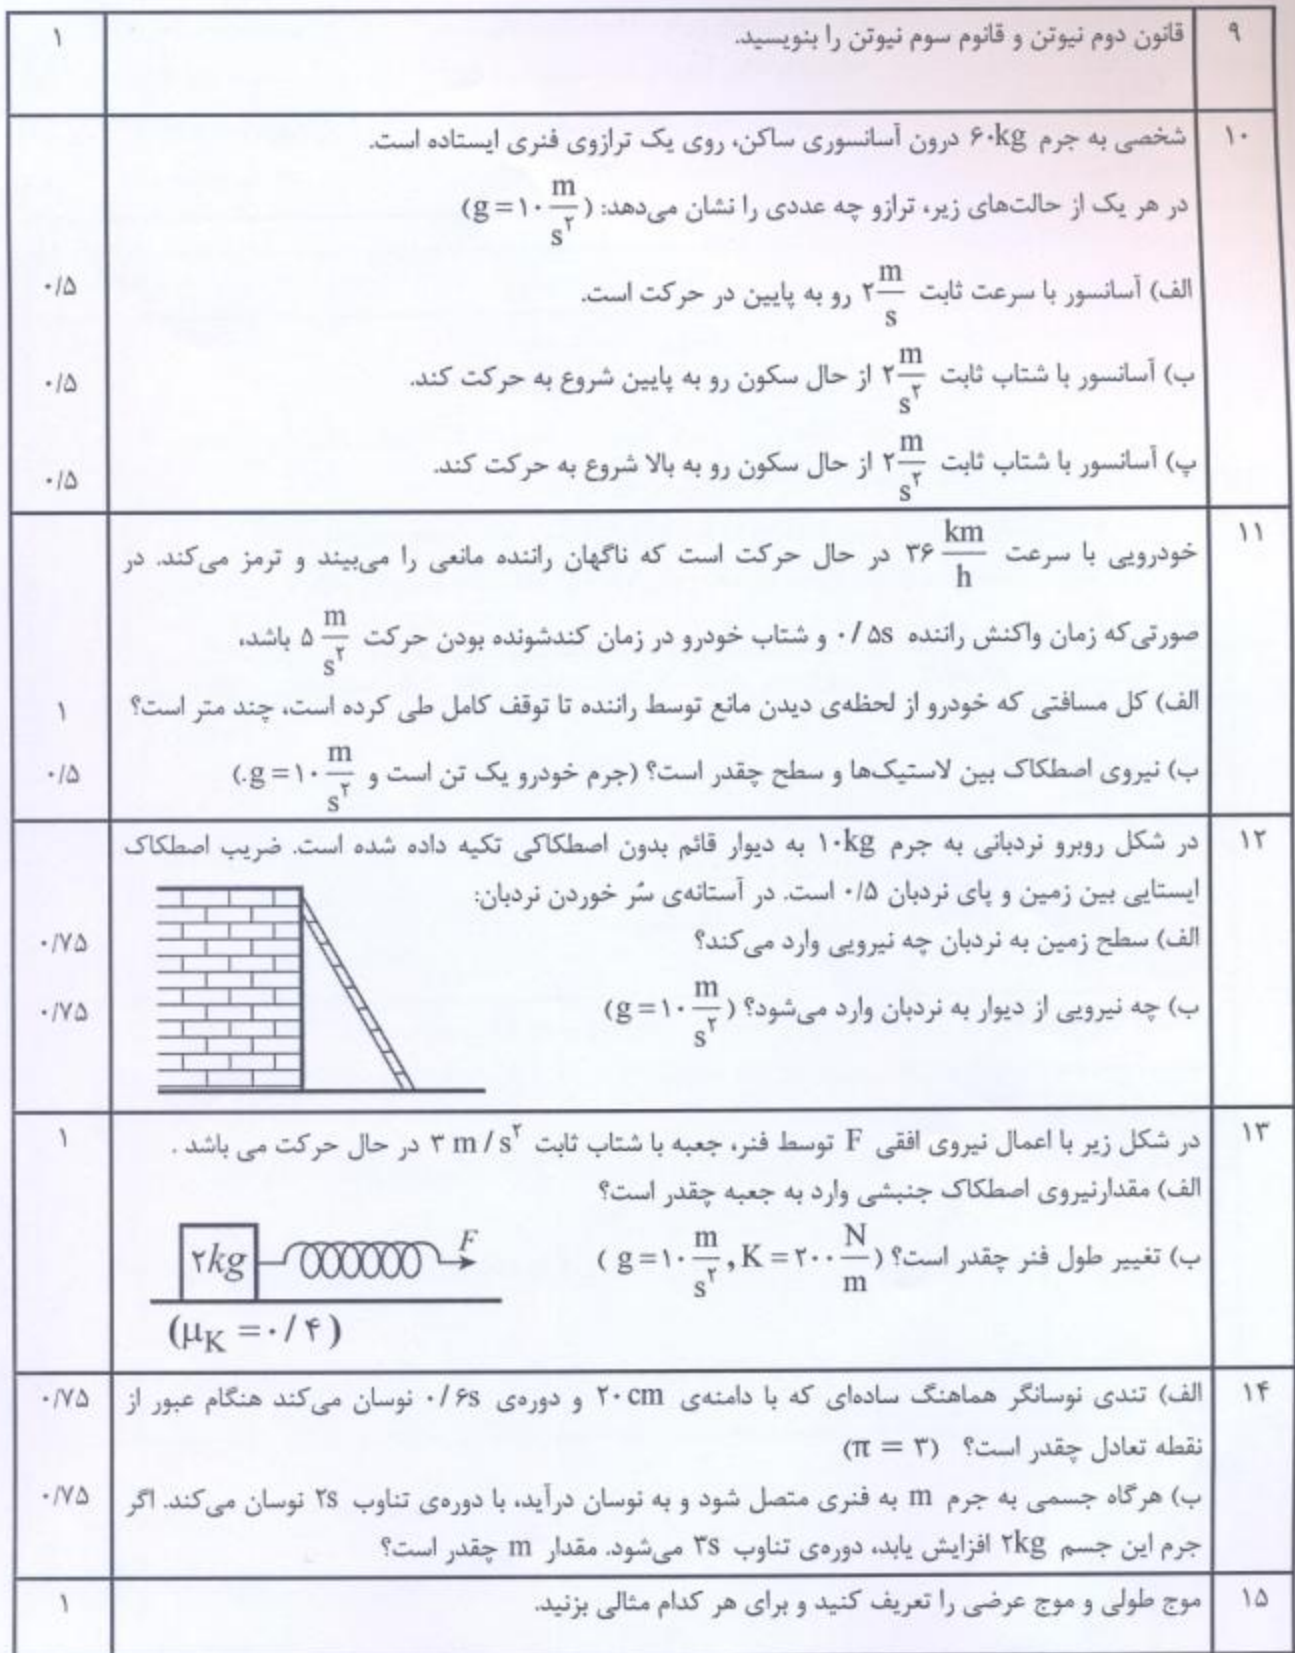 ۹ قانون دوم نیوتن و قانوم سوم نیوتن را بنویسید. ۱
۱۰ شخصی به جرم ۶۰kg درون آسانسوری ساکن، روی یک ترازوی فنری ایستاده است.
در هر یک از حالت‌های زیر، ترازو چه عددی را نشان می‌دهد: (g = ۱۰ m/s۲)
الف) آسانسور با سرعت ثابت ۲ m/s رو به پایین در حرکت است. ۰/۵
ب) آسانسور با شتاب ثابت ۲ m/s۲ از حال سکون رو به پایین شروع به حرکت کند. ۰/۵
پ) آسانسور با شتاب ثابت ۲ m/s۲ از حال سکون رو به بالا شروع به حرکت کند. ۰/۵
۱۱ خودرویی با سرعت ۳۶ km/h در حال حرکت است که ناگهان راننده مانعی را می‌بیند و ترمز می‌کند. در
صورتی‌که زمان واکنش راننده ۰/۵s و شتاب خودرو در زمان کندشونده بودن حرکت ۵ m/s۲ باشد،
الف) کل مسافتی که خودرو از لحظه‌ی دیدن مانع توسط راننده تا توقف کامل طی کرده است، چند متر است؟ ۱
ب) نیروی اصطکاک بین لاستیک‌ها و سطح چقدر است؟ (جرم خودرو یک تن است و g = ۱۰ m/s۲.) ۰/۵
۱۲ در شکل روبرو نردبانی به جرم ۱۰kg به دیوار قائم بدون اصطکاکی تکیه داده شده است. ضریب اصطکاک
ایستایی بین زمین و پای نردبان ۰/۵ است. در آستانه‌ی سُر خوردن نردبان:
الف) سطح زمین به نردبان چه نیرویی وارد می‌کند؟ ۰/۷۵
ب) چه نیرویی از دیوار به نردبان وارد می‌شود؟ (g = ۱۰ m/s۲) ۰/۷۵
۱۳ در شکل زیر با اعمال نیروی افقی F توسط فنر، جعبه با شتاب ثابت ۳ m/s۲ در حال حرکت می باشد . ۱
الف) مقدارنیروی اصطکاک جنبشی وارد به جعبه چقدر است؟
ب) تغییر طول فنر چقدر است؟ (g = ۱۰ m/s۲ , K = ۲۰۰ N/m)
۲kg F
(μK = ۰/۴)
۱۴ الف) تندی نوسانگر هماهنگ ساده‌ای که با دامنه‌ی ۲۰cm و دوره‌ی ۰/۶s نوسان می‌کند هنگام عبور از ۰/۷۵
نقطه تعادل چقدر است؟ (π = ۳)
ب) هرگاه جسمی به جرم m به فنری متصل شود و به نوسان درآید، با دوره‌ی تناوب ۲s نوسان می‌کند. اگر ۰/۷۵
جرم این جسم ۲kg افزایش یابد، دوره‌ی تناوب ۳s می‌شود. مقدار m چقدر است؟
۱۵ موج طولی و موج عرضی را تعریف کنید و برای هر کدام مثالی بزنید. ۱